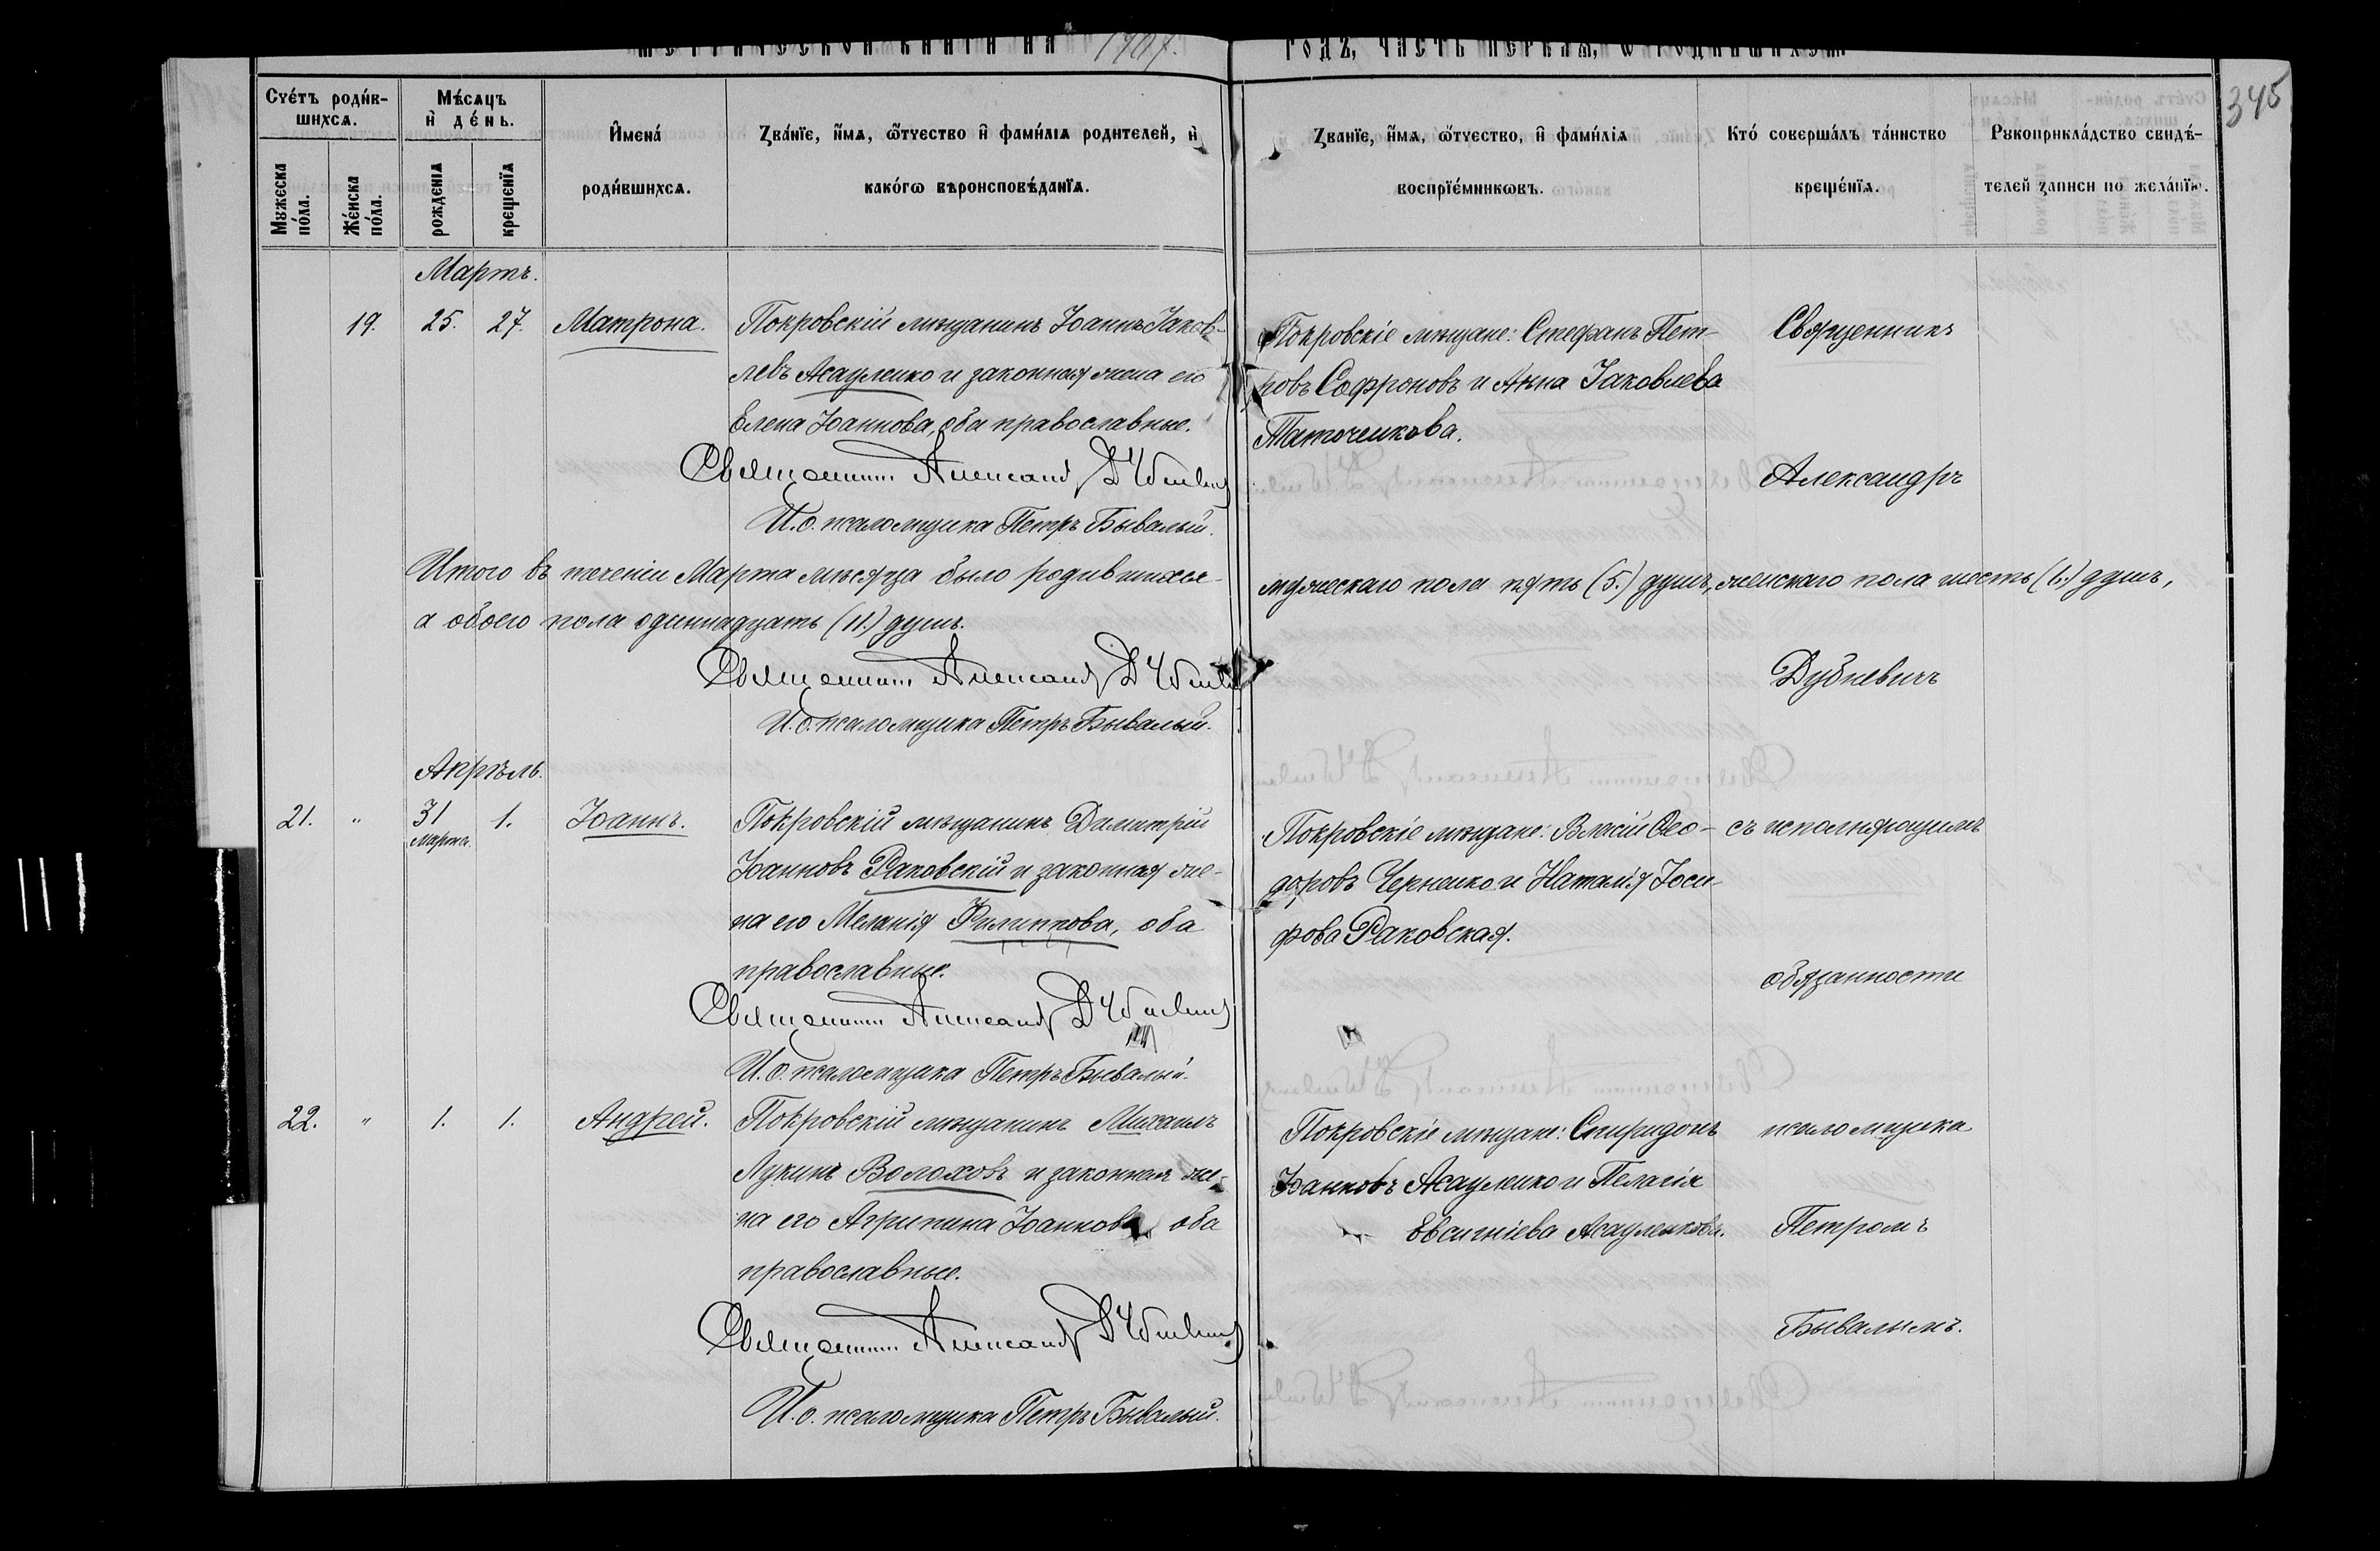 МЕТРИЧЕСКОЙ КНИГИ НА 1907.
ГОДЪ, ЧАСТЬ ПЕРВАЯ, Ѡ РОДИВШИХСЯ.
345
Счéтъ роди́в-
шихсѧ.
Мужеска
по́ла.
Же́нска
по́ла.
Мѣ́сѧцъ
и҆ де́нь.
рожденїѧ
крещенїѧ
И҆мена́
роди́вшихсѧ.
Зва́нїе, и҆́мѧ, ѻ҆́тчество и҆ фами́лїѧ родителей, и҆
како́гѡ вѣроисповѣ́данїѧ.
Званїе, и҆́мѧ, ѻ҆́тчество, и҆ фами́лїѧ
воспрїе́мникѡвъ.
Кто́ соверша́лъ та́инство
креще́нїѧ.
Рукоприкла́дство свидѣ́-
телей записи по жела́нїю.
Мартъ.
19. 25. 27. Матрона.
Покровскій мѣщанинъ Іоаннъ Іаков-
левъ Асауленко и законная жена его
Елена Іоаннова, оба православные.
Священникъ Александръ Дубневичъ
И. о. псаломщика Петръ Бывалый.
Покровскіе мѣщане: Стефанъ Пет-
ровъ Софроновъ и Анна Іаковлева
Таточенкова.
Священникъ
Александръ
Итого въ теченіи Марта мѣсяца было родившихся
мужескаго пола пять (5.) душъ, женскаго пола шесть (6.) душъ,
а обоего пола одиннадцать (11.) душъ.
Священникъ Александръ Дубневичъ
И. о. псаломщика Петръ Бывалый.
Дубневичъ
Апрѣль.
21. " 31 Марта. 1. Іоаннъ.
Покровскій мѣщанинъ Димитрій
Іоанновъ Раковскій и законная же-
на его Меланія Филиппова, оба
православные.
Священникъ Александръ Дубневичъ
И. о. псаломщика Петръ Бывалый.
Покровскіе мѣщане: Власій Ѳео-
доровъ Черненко и Наталія Іоси-
фова Раковская.
съ исполняющимъ
обязанности
22. " 1. 1. Андрей.
Покровскій мѣщанинъ Михаилъ
Лукинъ Волоховъ и законная же-
на его Агрипина Іоаннова, оба
православные.
Священникъ Александръ Дубневичъ
И. о. псаломщика Петръ Бывалый.
Покровскіе мѣщане: Спиридонъ
Іоанновъ Асауленко и Пелагія
Евсигніева Асауленкова.
псаломщика
Петромъ
Бывалымъ.